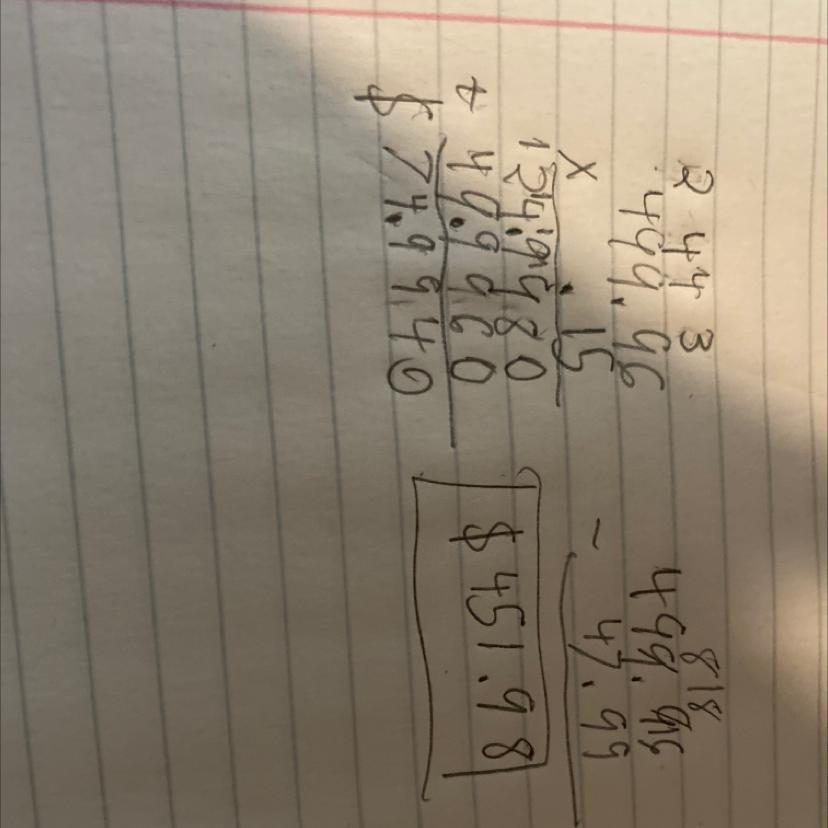 2 44 3
499.96
x .15
124.9980
+ 49.9960
$ 74.9940
8 18
499.99
- 47.99
$451.98